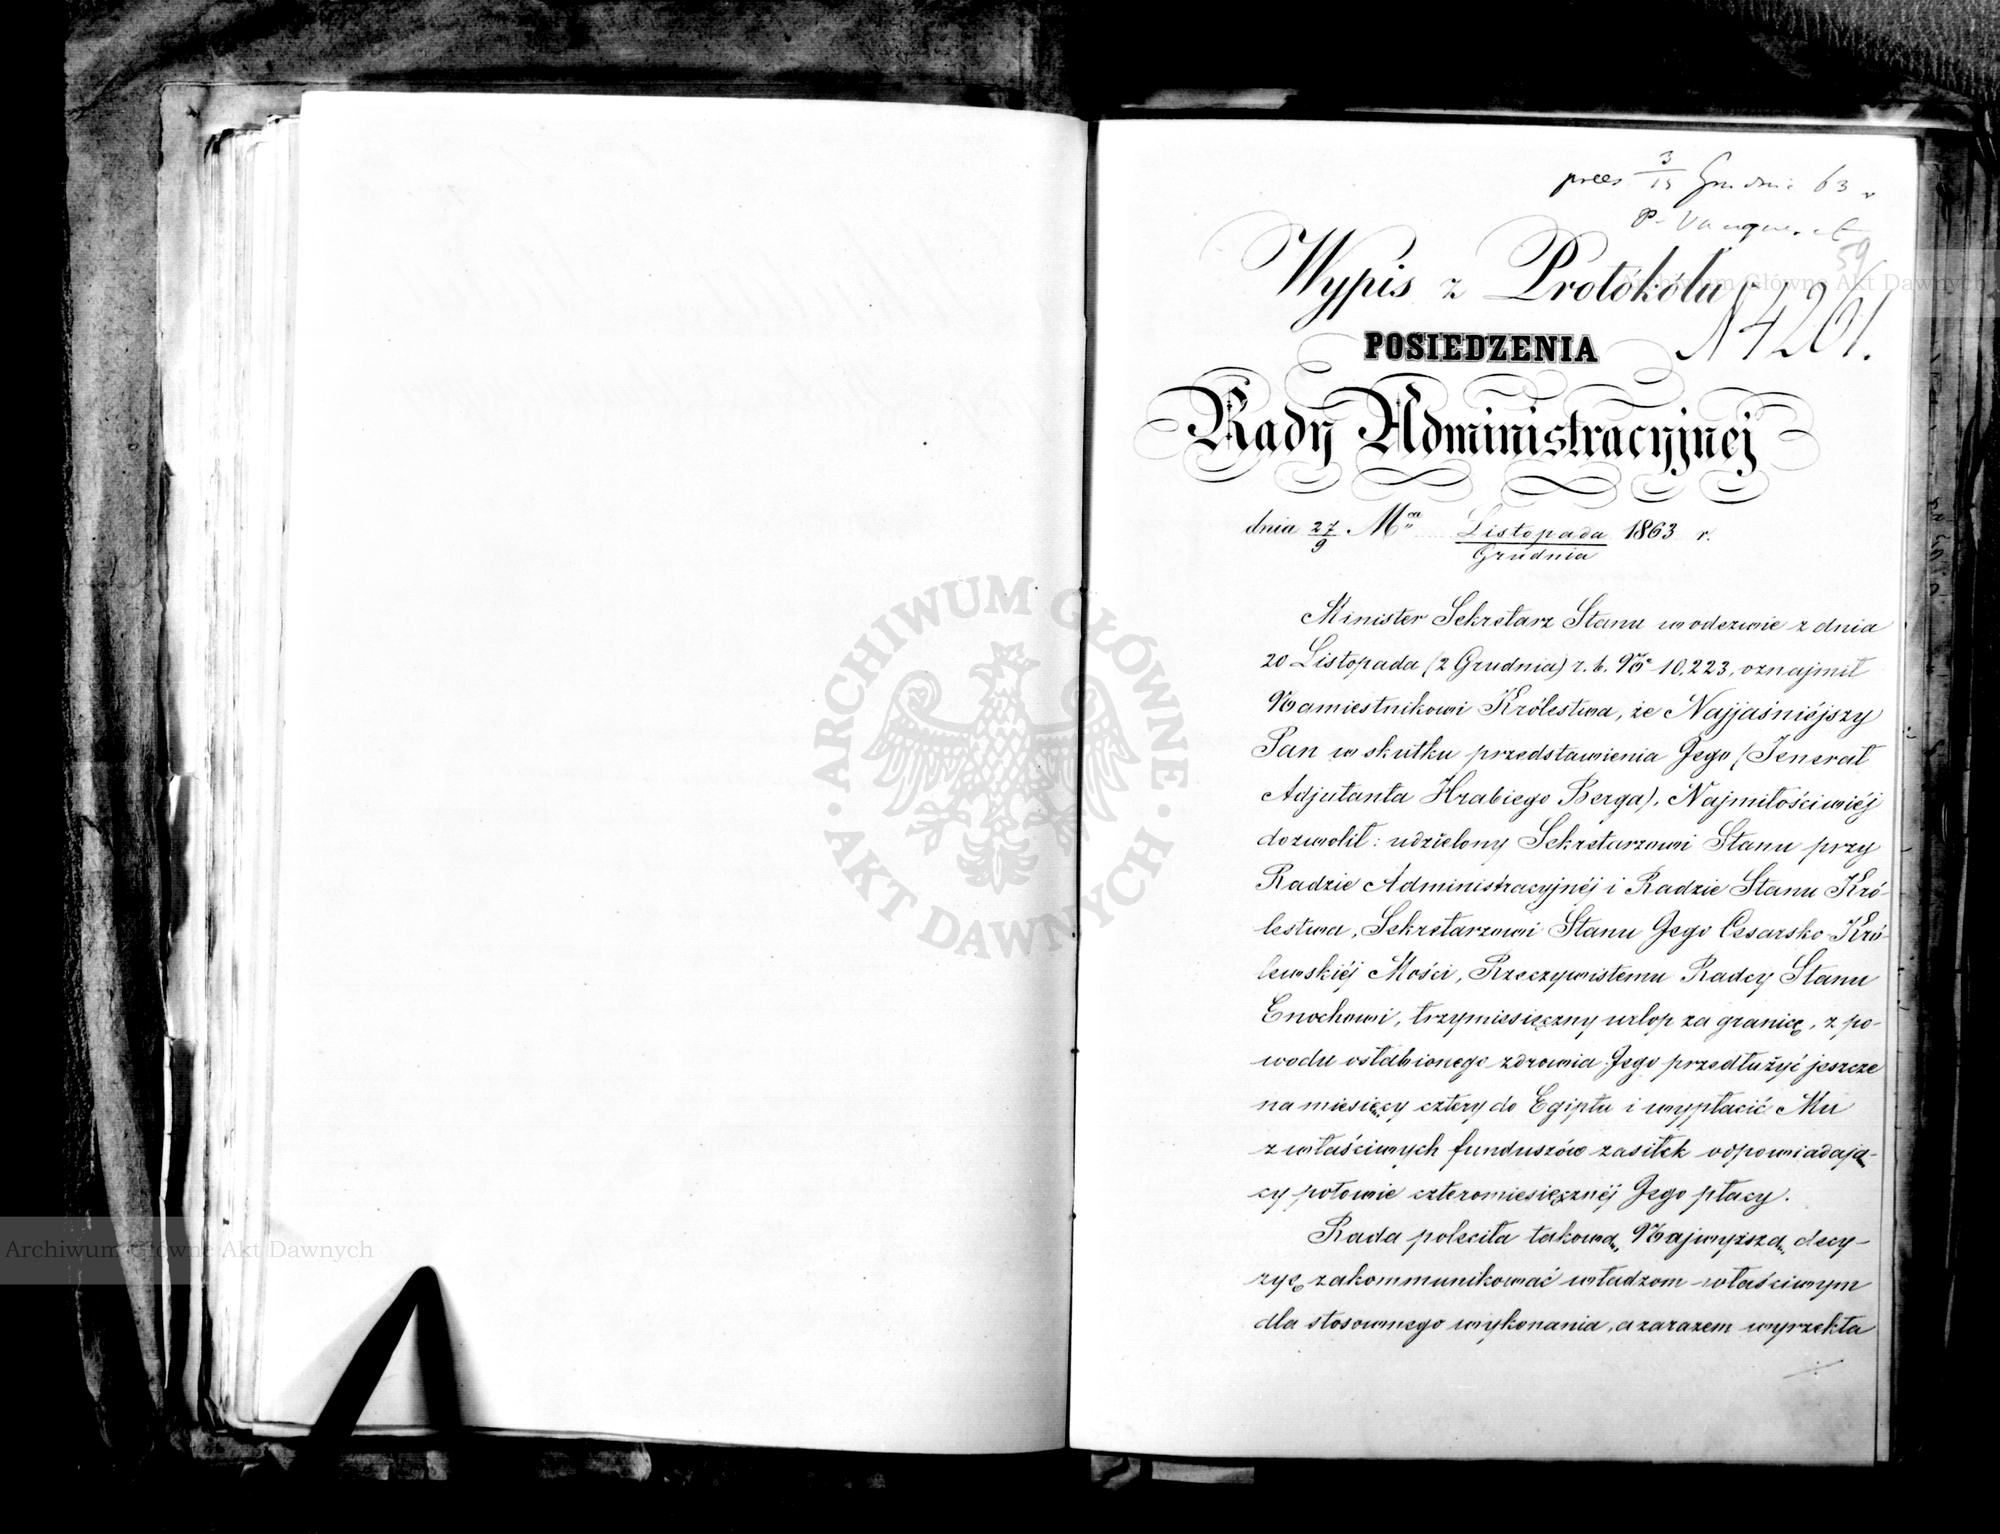 praes 3/15 Grudnia 63 r
59
Wypis z Protokółu
N 4261.
POSIEDZENIA
Rady Administracyjnej
dnia 27/9 Mca Listopada/Grudnia 1863 r.
Minister Sekretarz Stanu w odezwie z dnia
20 Listopada (2 Grudnia) r. b. No 10,223, oznajmił
Namiestnikowi Królestwa, że Najjaśniéjszy
Pan w skutku przedstawienia Jego (Jenerał
Adjutanta Hrabiego Berga), Najmiłościwiéj
dozwolił: udzielony Sekretarzowi Stanu przy
Radzie Administracyjnéj i Radzie Stanu Kró-
lestwa, Sekretarzowi Stanu Jego Cesarsko-Kró-
lewskiéj Mości, Rzeczywistemu Radcy Stanu
Enochowi, trzymiesięczny urlop za granicę, z po-
wodu osłabionego zdrowia Jego przedłużyć jeszcze
na miesięcy cztery do Egiptu i wypłacić Mu
z właściwych funduszów zasiłek odpowiadają-
cy połowie czteromiesięcznéj Jego płacy.
Rada poleciła takową Najwyższą decy-
zyę zakommunikować władzom właściwym
dla stosownego wykonania, a zarazem wyrzekła
ARCHIWUM GŁÓWNE · AKT DAWNYCH ·
Archiwum Główne Akt Dawnych
Archiwum Główne Akt Dawnych